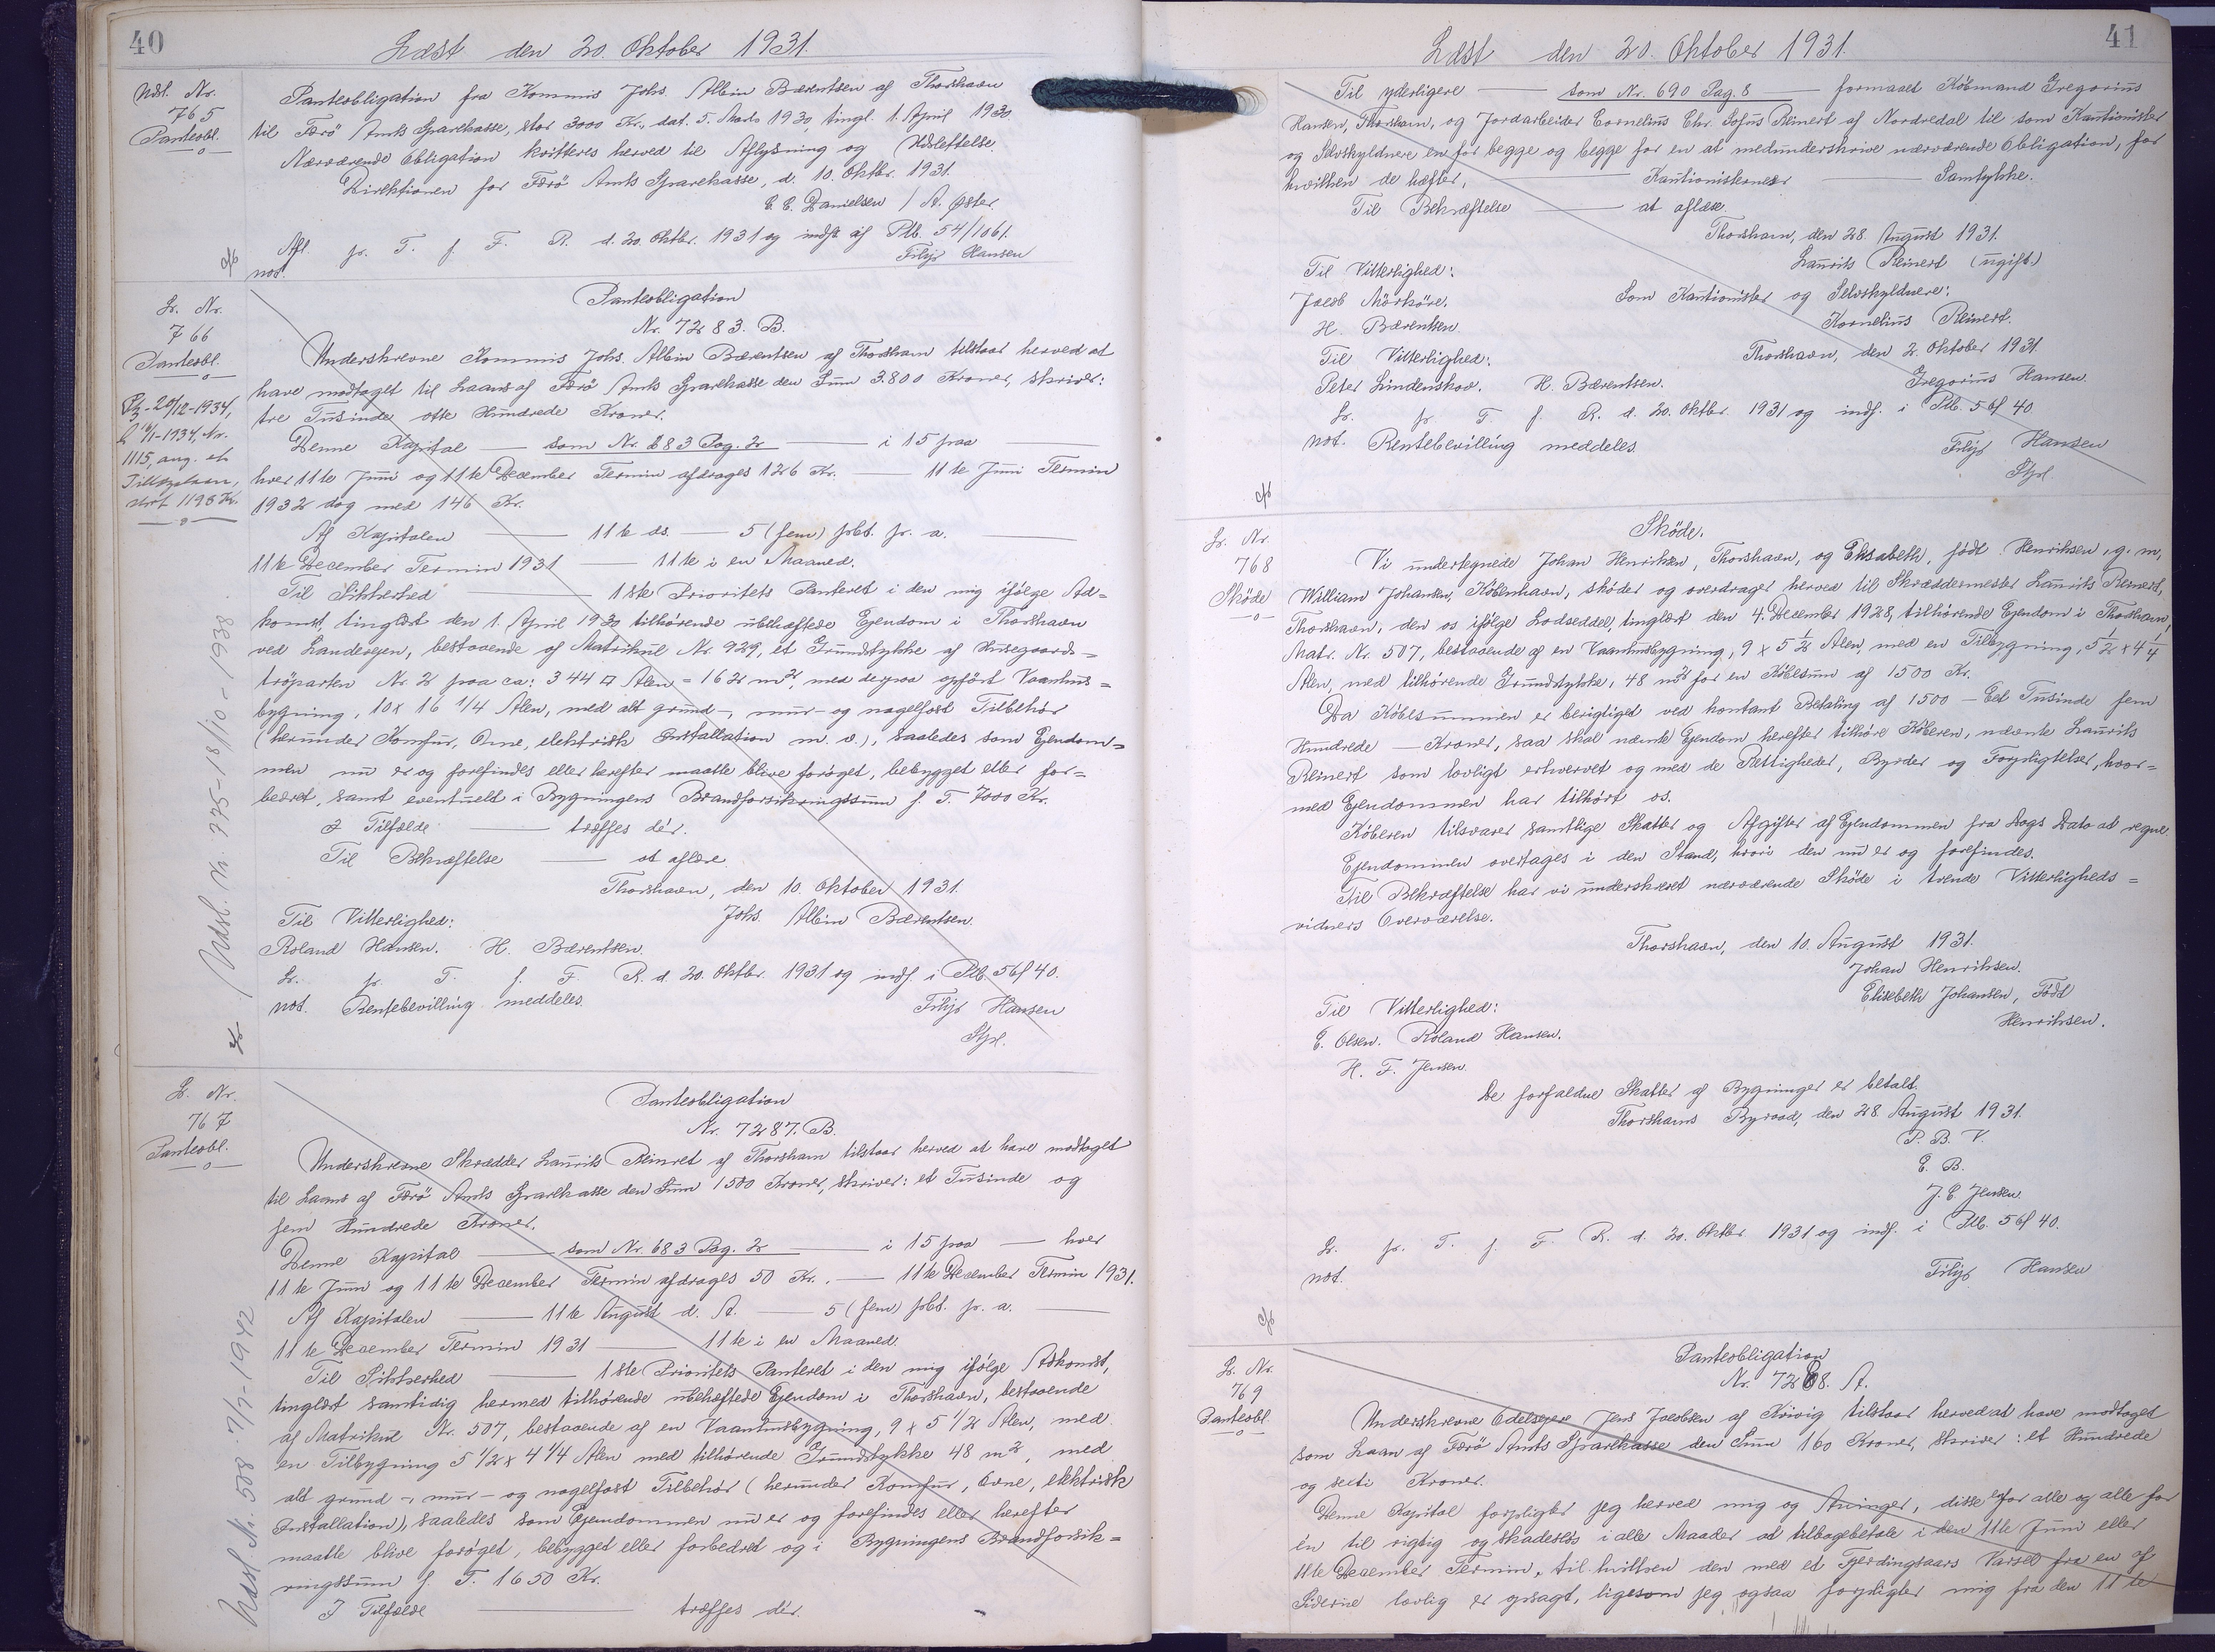 40
Læst den 20. Oktober 1931.
Udsl. Nr.
765
Panteobl.
Panteobligation fra Kommis Johs. Albin Bærentsen af Thorshavn
til Færö Amts Sparekasse, stor 3000 Kr., dat. 5. Marts 1930, tingl. 1. April 1930.
Nærværende Obligation kvitteres herved til Aflysning og Udslettelse.
Direktionen for Færö Amts Sparekasse, d. 10. Oktbr. 1931.
E. E. Danielsen / A. Øster.
Afl. pr. T. f. F. R. d. 20. Oktbr. 1931 og indf. af Ptb. 54/1061.
not. Filip Hansen
Lr. Nr.
766
Panteobl.
1115, ang. et
Tillægslaan,
stort 1198 Kr.
Udsl. Nr. 775-18/10-1938.
Panteobligation
Nr. 7283. B.
Underskrevne Kommis Johs. Albin Bærentsen af Thorshavn tilstaar herved at
have modtaget til Laans af Færö Amts Sparekasse den Sum 3.800 Kroner, skriver:
tre Tusinde otte Hundrede Kroner.
Denne Kapital — som Nr. 683 Pag. 2 — i 15 paa —
hver 11te Juni og 11te December Termin afdrages 126 Kr. — 11te Juni Termin
1932 dog med 146 Kr.
Af Kapitalen — 11te ds. — 5 (fem) pCt. pr. a. —
11te December Termin 1931 — 11te i en Maaned.
Til Sikkerhed — 1ste Prioritets Panteret i den mig ifølge Ad=
komst tinglæst den 1. April 1930 tilhörende ubehæftede Ejendom i Thorshavn
ved Landevejen, bestaaende af Matrikul Nr. 929, et Grundstykke af Husegaards=
tröparten Nr. 2 paa ca: 344 □ Alen = 162 m², med derpaa opført Vaanhus=
bygning, 10 x 16 1/4 Alen, med alt grund-, mur- og nagelfast Tilbehör
(herunder Komfur, Ovne, elektrisk Installation m. v.), saaledes som Ejendom=
men nu er og forefindes eller herefter maatte blive forøget, bebygget eller for=
bedret, samt eventuelt i Bygningens Brandforsikringssum f. T. 7000 Kr.
I Tilfælde — træffes dér.
Til Bekræftelse — at aflæse
Thorshavn, den 10. Oktober 1931.
Til Vitterlighed: Johs. Albin Bærentsen.
Roland Hansen. H. Bærentsen.
Lr. pr. T. f. F. R. d. 20. Oktbr. 1931 og indf. i Ptb. 56f 40.
not. Rentebevilling meddeles. Filip Hansen
Stpl.
Lr. Nr.
767
Panteobl.
Udsl. Nr. 508. 7/7-1942
Panteobligation
Nr. 7287. B.
Underskrevne Skrædder Laurits Reinret af Thorshavn tilstaar herved at have modtaget
til Laans af Færö Amts Sparekasse den Sum 1500 Kroner, skriver: et Tusinde og
fem Hundrede Kroner.
Denne Kapital — som Nr. 683 Pag. 2 — i 15 paa — hver
11te Juni og 11te December Termin afdrages 50 Kr. — 11te December Termin 1931.
Af Kapitalen — 11te August d. A. — 5 (fem) pCt. pr. a. —
11te December Termin 1931 — 11te i en Maaned.
Til Sikkerhed — 1ste Prioritets Panteret i den mig ifølge Adkomst,
tinglæst samtidig hermed tilhørende ubehæftede Ejendom i Thorshavn, bestaaende
af Matrikul Nr. 507, bestaaende af en Vaanhusbygning, 9 x 5 1/2 Alen, med
en Tilbygning 5 1/2 x 4 1/4 Alen med tilhörende Grundstykke 48 m², med
alt grund-, mur- og nagelfast Tilbehør (herunder Komfur, Ovne, elektrisk
Installation), saaledes som Ejendommen nu er og forefindes eller herefter
maatte blive forøget, bebygget eller forbedret og i Bygningens Brandforsik=
ringssum f. T. 1650 Kr.
I Tilfælde — træffes dér.
41
Læst den 20. Oktober 1931.
Til yderligere — som Nr. 690 Pag. 8 — formaaet Købmand Gregorius
Hansen, Thorshavn, og Jordarbeider Cornelius Chr. Sofus Reinert af Nordredal til som Kautionister
og Selvskyldnere en for begge og begge for en at medunderskrive nærværende Obligation, for
hvilken de hæfter. — Kautionisternes — Samtykke.
Til Bekræftelse — at aflæse.
Thorshavn, den 28. August 1931.
Laurits Reinert (ugift.)
Til Vitterlighed:
Jacob Mörköre. Som Kautionister og Selvskyldnere:
H. Bærentsen. Kornelius Reinert.
Til Vitterlighed: Thorshavn, den 2. Oktober 1931.
Peter Lindenskov. H. Bærentsen. Gregorius Hansen.
Lr. pr. T. f. R. d. 20. Oktbr. 1931 og indf. i Ptb. 56f 40
not. Rentebevilling meddeles. Filip Hansen
Stpl.
Lr. Nr.
768
Sköde
Sköde.
Vi undertegnede Johan Henriksen, Thorshavn, og Elisabeth, født Henriksen, g. m.
William Johansen, København, sköder og overdrager herved til Skræddermester Laurits Reinert,
Thorshavn, den os ifölge Lodseddel, tinglæst den 4. December 1928, tilhörende Ejendom i Thorshavn,
Matr. Nr. 507, bestaaende af en Vaanhusbygning, 9 x 5 1/2 Alen, med en Tilbygning, 5 1/2 x 4 1/4
Alen, med tilhörende Grundstykke, 48 m² for en Köbesum af 1500 Kr.
Da Köbesummen er berigtiget ved kontant Betaling af 1500 — Eet Tusinde fem
Hundrede — Kroner, saa skal nævnte Ejendom herefter tilhöre Köberen, nævnte Laurits
Reinert som lovligt erhvervet og med de Rettigheder, Byrder og Forpligtelser, hvor=
med Ejendommen har tilhört os.
Köberen tilsvarer samtlige Skatter og Afgifter af Ejendommen fra Dags Dato at regne.
Ejendommen overtages i den Stand, hvori den nu er og forefindes.
Til Bekræftelse har vi underskrevet nærværende Sköde i tvende Vitterligheds=
vidners Overværelse.
Thorshavn, den 10. August 1931.
Johan Henriksen.
Elisebeth Johansen, Född
Til Vitterlighed: Henriksen.
E. Olsen. Roland Hansen.
H. F. Jensen.
De forfaldne Skatter af Bygninger er betalt.
Thorshavns Byraad, den 28. August 1931.
P. B. V.
E. B.
J. E. Jensen.
Lr. pr. T. f. F. R. d. 20. Oktbr. 1931 og indf. i Ptb. 56f 40.
not. Filip Hansen
Lr. Nr.
769
Panteobl.
Panteobligation
Nr. 7288. A.
Underskrevne Odelsejere Jens Jacobsen af Kvivig tilstaar herved at have modtaget
som Laan af Færö Amts Sparekasse den Sum 160 Kroner, skriver: et Hundrede
og seksti Kroner.
Denne Kapital forpligter jeg herved mig og Arvinger, disse én for alle og alle for
én til rigtig og skadeslös i alle Maader at tilbagebetale i den 11te Juni eller
11te December Termin, til hvilken den med et Fjerdingaars Varsel fra en af
Siderne lovlig er opsagt, ligesom jeg ogsaa forpligter mig fra den 11te